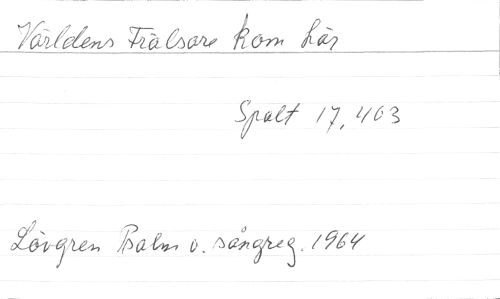 Världens Frälsare kom här
Spalt 17,463
Lövgren Psalm o. sångreg. 1964